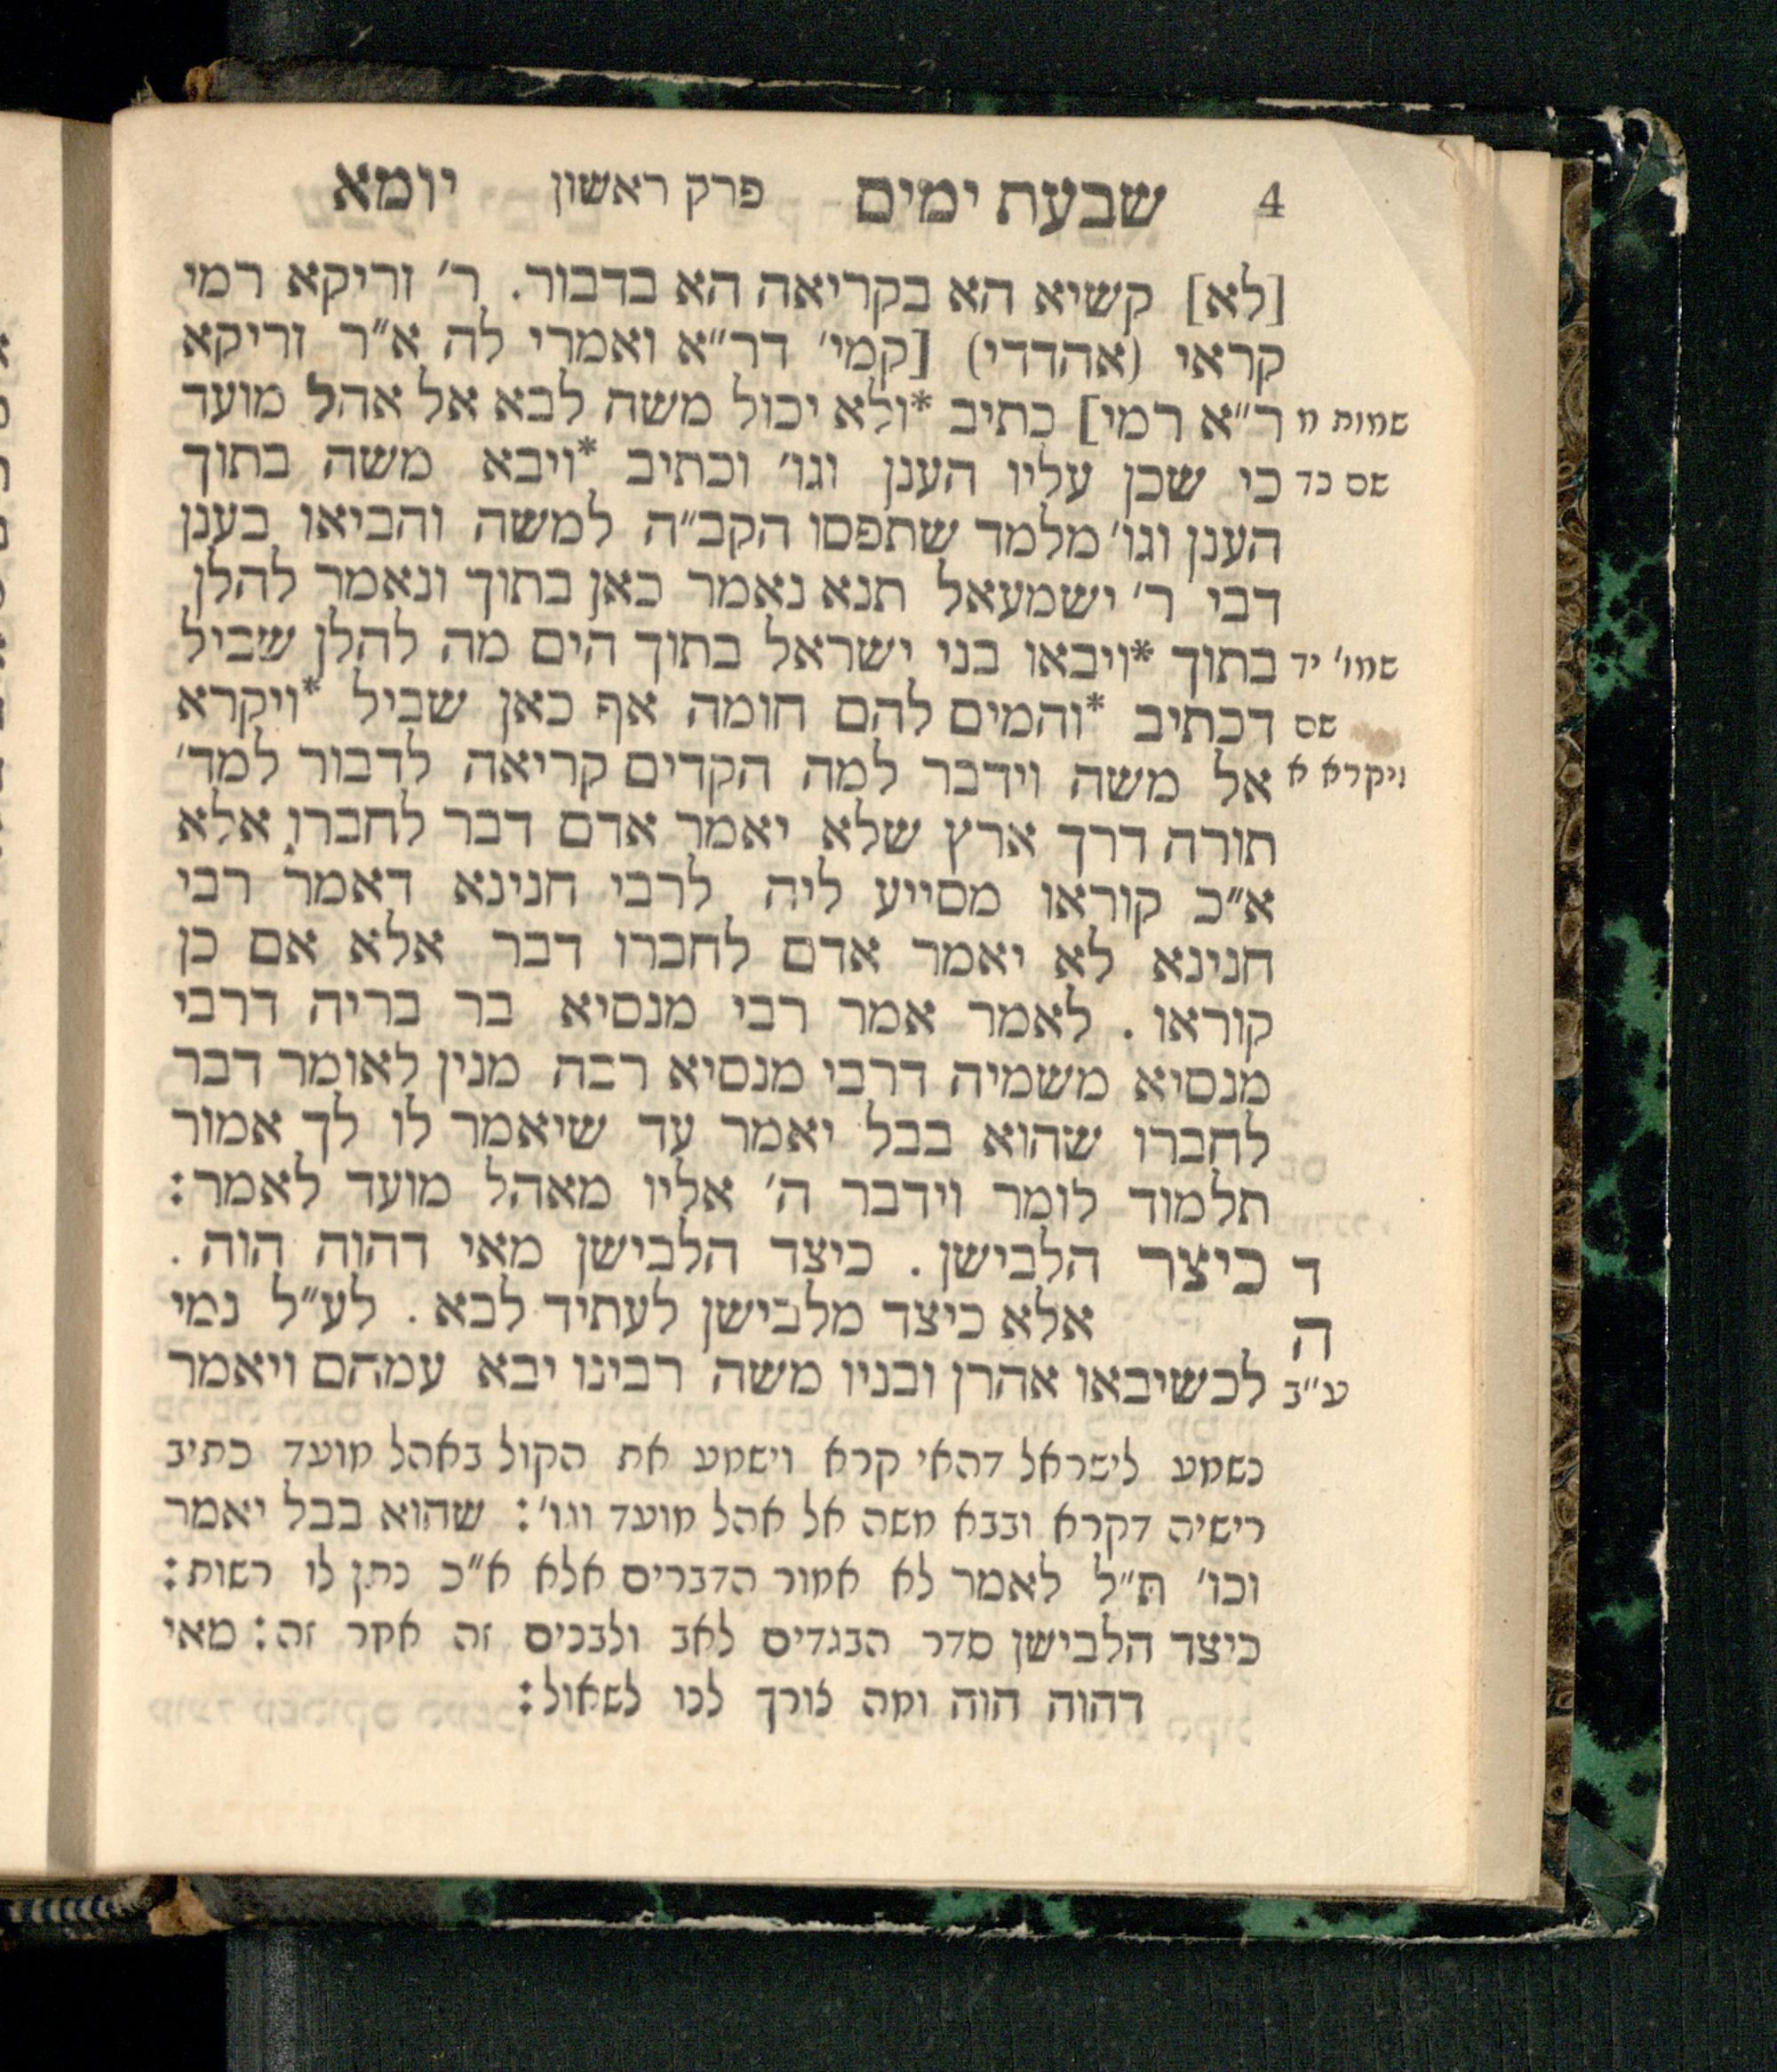 4 שבעת ימים פרק ראשון יומא
[לא] קשיא הא בקריאה הא בדבור. ר׳ זריקא רמי
קראי (אהדדי) [קמי׳ דר״א ואמרי לה א״ר זריקא
שמות מ ר״א רמי] כתיב *ולא יכול משה לבא אל אהל מועד
שם כד כי שכן עליו הענן וגו׳ וכתיב *ויבא משה בתוך
הענן וגו׳ מלמד שתפסו הקב״ה למשה והביאו בענן
דבי ר׳ ישמעאל תנא נאמר כאן בתוך ונאמר להלן
שמו׳ יד בתוך *ויבאו בני ישראל בתוך הים מה להלן שביל
שם דכתיב *והמים להם חומה אף כאן שביל *ויקרא
ויקרא א אל משה וידבר למה הקדים קריאה לדבור למד׳
תורה דרך ארץ שלא יאמר אדם דבר לחברו אלא
א״כ קוראו מסייע ליה לרבי חנינא דאמר רבי
חנינא לא יאמר אדם לחברו דבר אלא אם כן
קוראו. לאמר אמר רבי מנסיא בר בריה דרבי
מנסיא משמיה דרבי מנסיא רבה מנין לאומר דבר
לחברו שהוא בבל יאמר עד שיאמר לו לך אמור
תלמוד לומר וידבר ה׳ אליו מאהל מועד לאמר:
ד כיצד הלבישן. כיצד הלבישן מאי דהוה הוה.
ה אלא כיצד מלבישן לעתיד לבא. לע״ל נמי
ע״ב לכשיבאו אהרן ובניו משה רבינו יבא עמהם ויאמר
נשמע לישראל דהאי קרא וישמע את הקול באהל מועד כתיב
רישיה דקרא ובבא משה אל אהל מועד וגו׳: שהוא בבל יאמר
וכו׳ ת״ל לאמר לא אמור הדברים אלא א״כ נתן לו רשות:
כיצד הלבישן סדר הבגדים לאב ולבנים זה אחר זה: מאי
דהוה הוה ומה צורך לנו לשאול: